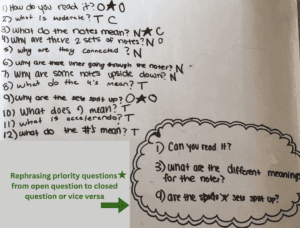 1) How do you read it? O★O
2) what is moderate? T C
3) what do the notes mean? N★C
4) Why are there 2 sets of notes? N O
5) why are they connected? N
6) why are there lines going through the notes? N
7) Why are some notes upside down? N
8) what do the 4's mean? T
9) why are the sets split up? O★O
10) What does mean? T
11) what is accelerando? T
12) what do the #'s mean? T
Rephrasing priority questions ★
from open question to closed
question or vice versa
1) Can you read it?
3) what are the different meanings
for the notes?
9) are the sets split up?